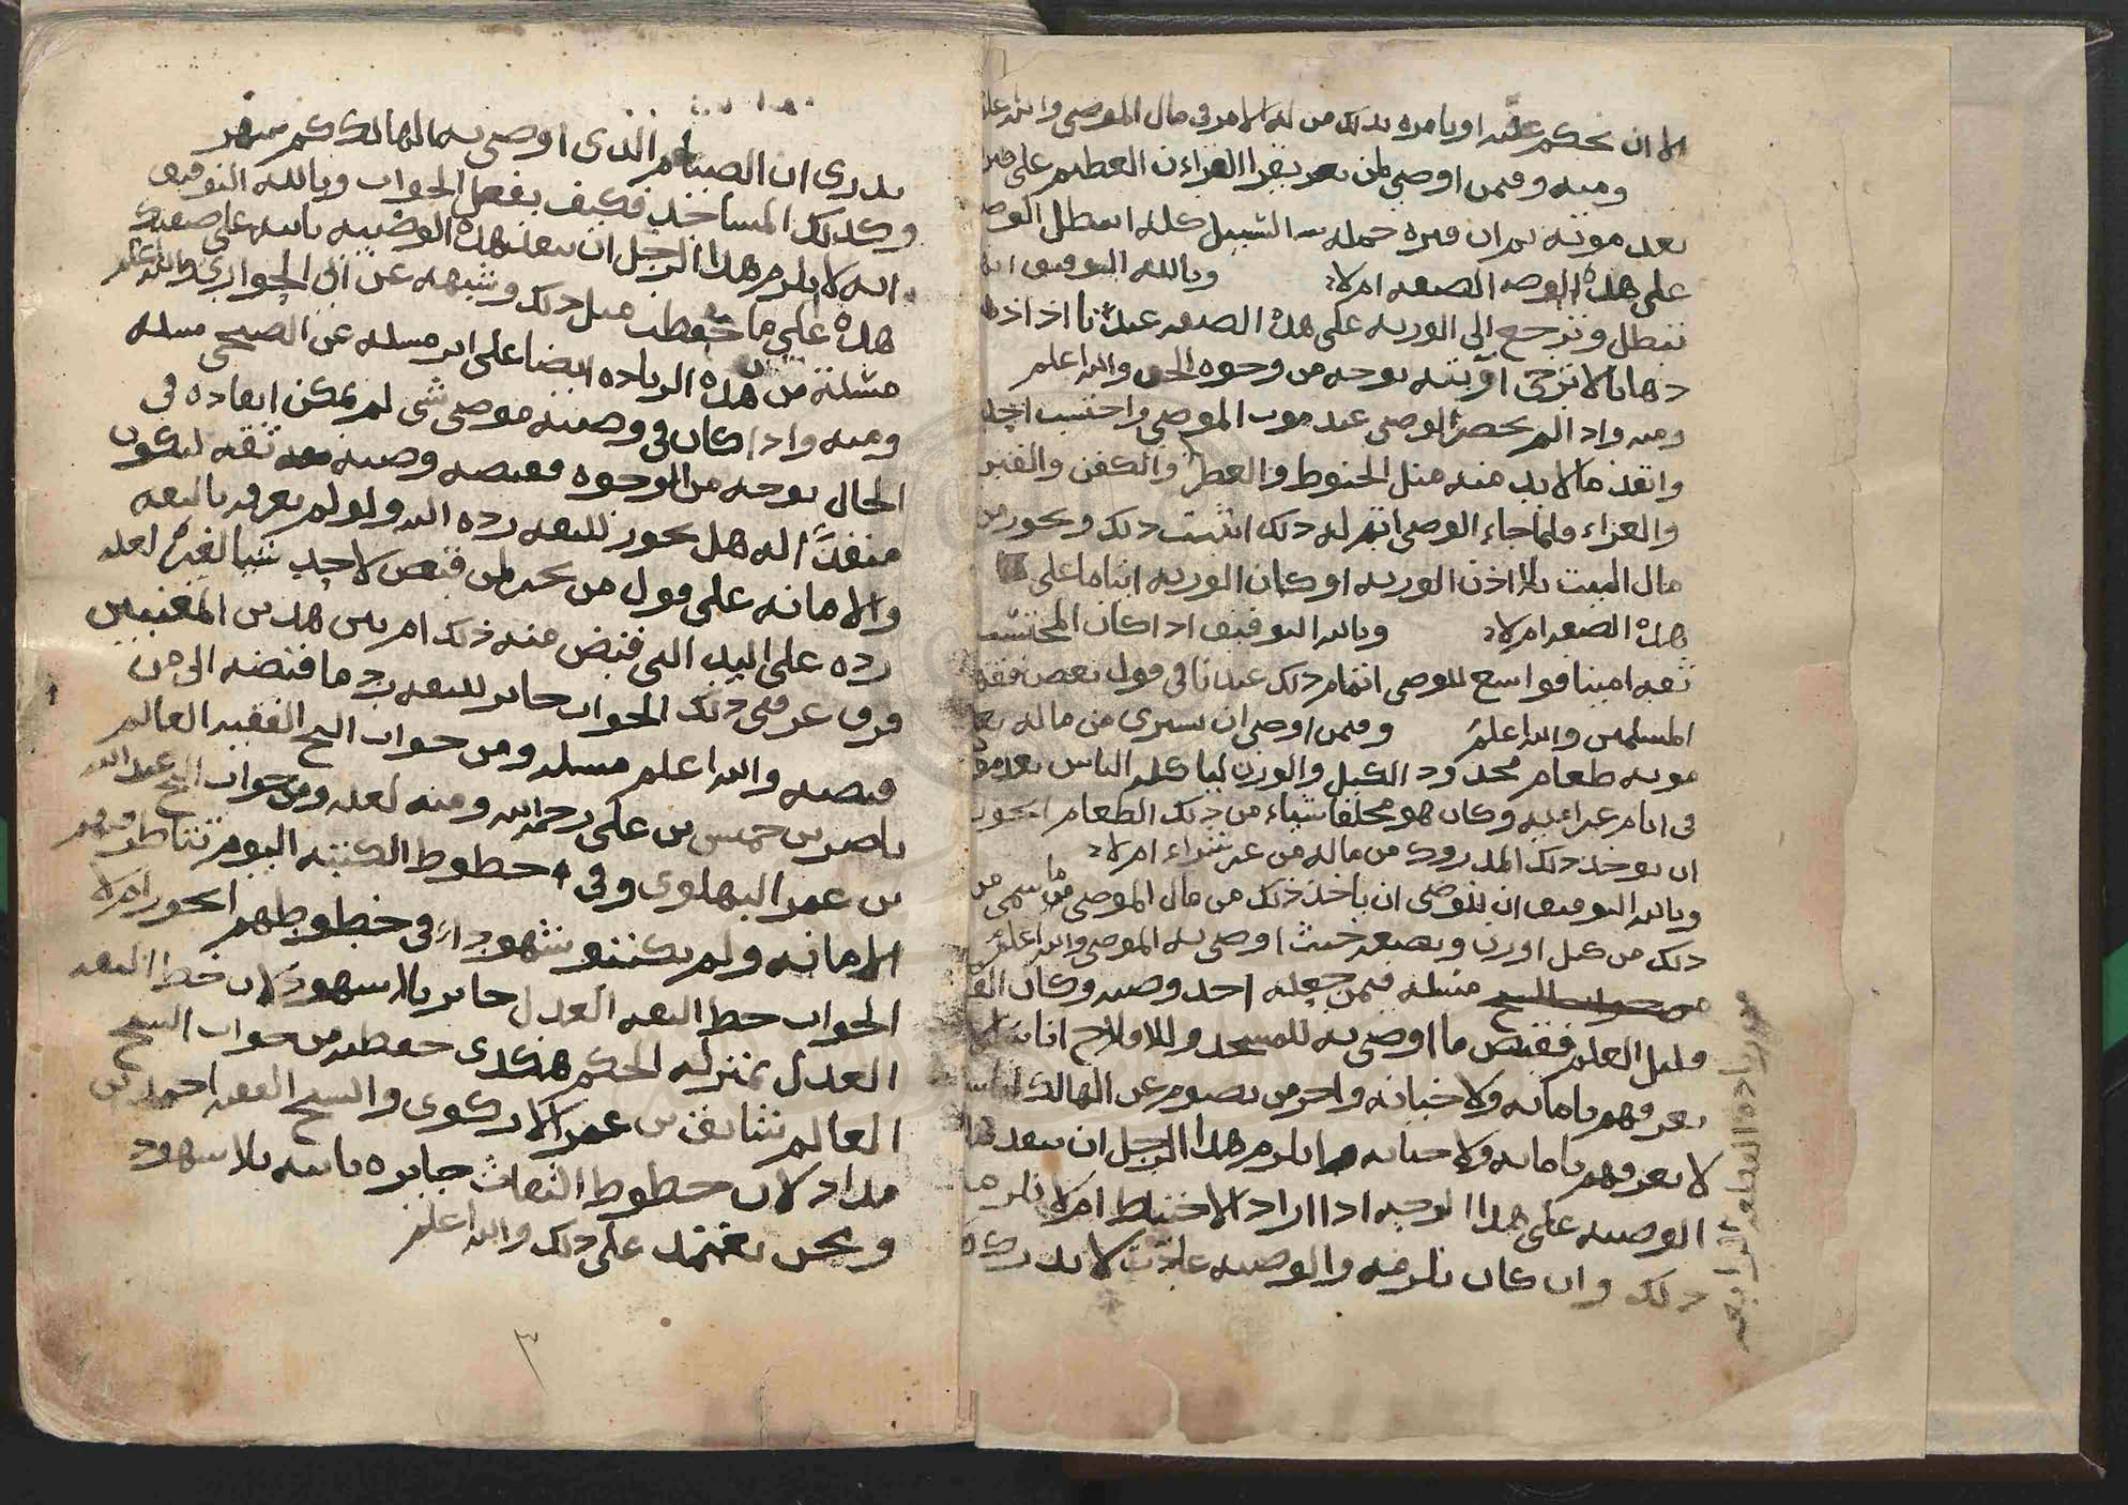 الا ان يحكم عليه او يامره بذلك من له الامر في مال الموصي والله اعلم
ومنه وفيمن اوصى لمن يقرا القراءن العظيم على قبره
بعد موته ثم ان قبره حمله السيل كله اتبطل الوصية
على هذه الصفة ام لا؟ وبالله التوفيق انها
تبطل وترجع الى الورثة على هذه الصفة عندنا اذا ذهب
ذهابا لا ترجى اوبته بوجه من وجوه الحق والله اعلم
ومنه واذا لم يحضر الوصي عند موت الموصي واحتسب احد
وانفذ ما لابد منه مثل الحنوط والعطر والكفن والقبر
والعزاء ولما جاء الوصي اتم له ذلك ايثبت ذلك ويجوز من
مال الميت بلا اذن الورثة او كان الورثة ايتاما على
هذه الصفة ام لا؟ وبالله التوفيق اذا كان المحتسب
ثقة امينا فواسع للوصي اتمام ذلك عندنا في قول بعض فقهاء
المسلمين والله اعلم وفيمن اوصى ان يشترى من ماله بعد
موته طعام محدود الكيل والوزن لياكله الناس بعد موته
في ايام عزائه وكان هو مخلفا شياء من ذلك الطعام ايجوز
ان يوخذ ذلك المذرود من ماله من غير شراء ام لا؟
وبالله التوفيق ان للوصي ان ياخذ ذلك من مال الموصي ما سمى من
ذلك من كيل او وزن ويضعه حيث اوصى به الموصي والله اعلم
من جواب الشيخ مسئلة فيمن جعله احد وصيه وكان
قليل العلم فقبض ما اوصى به للمسجد وللافلاج اناسا لا
يعرفهم بامانه ولا خيانه واجر من يصوم عن الهالك اناسا
لا يعرفهم بامانه ولا خيانه ما يلزم هذا الرجل ان ينفذ هذه
الوصيه على هذا الوجه اذا اراد الاحتياط ام لا يلزمه
ذلك وان كان يلزمه والوصيه عادت لا يدركها
من زيادة القطعة الرابعه
يدرى ان الصيام الذي اوصى به الهالك كم شهر
وكذلك المساجد فكيف يفعل الجواب وبالله التوفيق
انه لا يلزم هذا الرجل ان ينفذ هذه الوصيه ثانيه على صفتك
هذه على ما حفظت مثل ذلك وشبهه عن ابي الحواري والله اعلم
مسئلة من هذه الزياده ايضا على اثر مسئله عن الصبحي مسئله
ومنه واذا كان في وصيته موصي شي لم يمكن انفاذه في
الحال بوجه من الوجوه فقبضه وصيه ثقه ليكون
منفذا له هل يجوز للثقه رده اليه ولو لم يعرفه بالثقه
والامانه على قول من يجيز لمن قبض لاحد شيا لغيره لعله
رده على اليد التي قبض منه ذلك ام بين هذين المعنيين
فرق عرفني ذلك الجواب جايز للثقه رد ما قبضه الى من
قبضه والله اعلم مسئله ومن جواب الشيخ الفقيه العالم
ناصر بن خميس بن على رحمه الله ومنه لعله ومن جواب الشيخ عبدالله
بن عمر البهلوي وفي خطوط الكتبه اليوم تتناظر فيهم
الامانه ولم يكتبو شهودا في خطوطهم ايجوز ام لا
الجواب خط الثقه العدل جايز بلا شهود لان خط الثقه
العدل بمنزله الحكم هكذى حفظته من جواب الشيخ
العالم شائق بن عمر الازكوي والشيخ الفقيه احمد بن
مداد لان خطوط الثقات جايزه ثابته بلا شهود
ونحن نعتمد على ذلك والله اعلم
٣